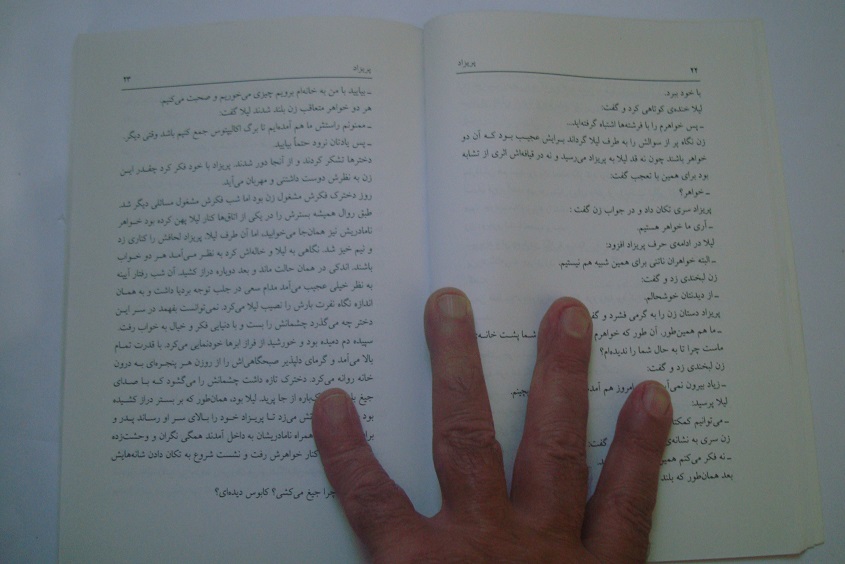 ۲۲ پریزاد
با خود ببرد.
لیلا خنده‌ی کوتاهی کرد و گفت:
ـ پس خواهرم را با فرشته‌ها اشتباه گرفته‌اید...
زن نگاه پر از سوالش را به طرف لیلا گرداند برایش عجیب بود که آن دو
خواهر باشند چون نه قد لیلا به پریزاد می‌رسید و نه در قیافه‌اش اثری از تشابه
بود برای همین با تعجب گفت:
ـ خواهر؟
پریزاد سری تکان داد و در جواب زن گفت:
ـ آری ما خواهر هستیم.
لیلا در ادامه‌ی حرف پریزاد افزود:
ـ البته خواهران ناتنی برای همین شبیه هم نیستیم.
زن لبخندی زد و گفت:
ـ از دیدنتان خوشحالم.
پریزاد دستان زن را به گرمی فشرد و
ـ ما هم همین‌طور. آن طور که خواهرم شما پشت خانه‌ی
ماست چرا تا به حال شما را ندیده‌ام؟
زن لبخندی زد و گفت:
ـ زیاد بیرون امروز هم
لیلا پرسید:
ـ می‌توانیم
زن سری به نشانه‌ی گفت:
ـ نه فکر می‌کنم
بعد همان‌طور که بلند
پریزاد ۲۳
ـ بیایید با من به خانه‌ام برویم چیزی می‌خوریم و صحبت می‌کنیم.
هر دو خواهر متعاقب زن بلند شدند لیلا گفت:
ـ ممنونم راستش ما هم آمده‌ایم تا برگ اکالیپتوس جمع کنیم باشد وقتی دیگر.
ـ پس یادتان نرود حتماً بیایید.
دخترها تشکر کردند و از آنجا دور شدند. پریزاد با خود فکر کرد چقدر این
زن به نظرش دوست داشتنی و مهربان می‌آید.
روز دخترک فکرش مشغول زن بود اما شب فکرش مشغول مسائلی دیگر شد.
طبق روال همیشه بسترش را در یکی از اتاق‌ها کنار لیلا پهن کرده بود خواهر
نامادریش نیز همان‌جا می‌خوابید، اما آن طرف لیلا. پریزاد لحافش را کناری زد
و نیم خیز شد. نگاهی به لیلا و خاله‌اش کرد به نظر می‌آمد هر دو خواب
باشند. اندکی در همان حالت ماند و بعد دوباره دراز کشید. آن شب رفتار آیینه
به نظر خیلی عجیب می‌آمد مدام سعی در جلب توجه بردیا داشت و به همان
اندازه نگاه نفرت بارش را نصیب لیلا می‌کرد. نمی‌توانست بفهمد در سر این
دختر چه می‌گذرد چشمانش را بست و با دنیایی فکر و خیال به خواب رفت.
سپیده دم دمیده بود و خورشید از فراز ابرها خودنمایی می‌کرد با قدرت تمام
بالا می‌آمد و گرمای دلپذیر صبحگاهی‌اش را از روزن هر پنجره‌ای به درون
خانه روانه می‌کرد. دخترک تازه داشت چشمانش را می‌گشود که با صدای
جیغ یکباره از جا پرید. لیلا بود، همان‌طور که بر بستر دراز کشیده
بود می‌زد تا پریزاد خود را بالای سر او رساند پدر و
همراه نامادریشان به داخل آمدند همگی نگران و وحشت‌زده
کنار خواهرش رفت و نشست شروع به تکان دادن شانه‌هایش
چرا جیغ می‌کشی؟ کابوس دیده‌ای؟